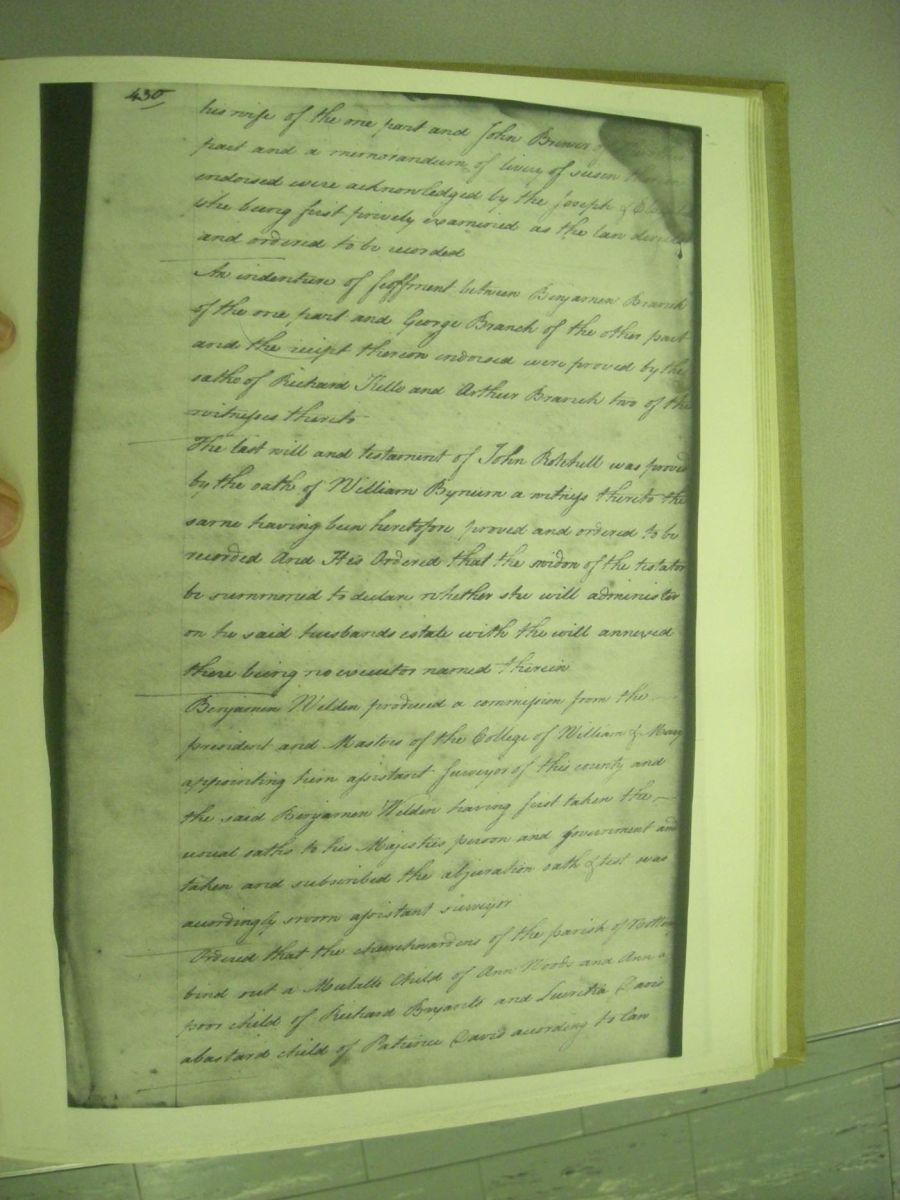 430
his wife of the one part and John Brewer
part and a memorandum of livery of seisin
endorsed were acknowledged by the Joseph &
she being first privily examined as the law directs
and ordered to be recorded
An indenture of feoffment between Benjamen Branch
of the one part and George Branch of the other part
and the reciept thereon endorsed were proved by the
oaths of Richard Kello and Arthur Branch two of the
witnesses thereto
The last will and testament of John Rotchell was proved
by the oath of William Bynum a witness thereto the
same having been heretofore proved and ordered to be
recorded And Itis Ordered that the widow of the testator
be summoned to declare whether she will administer
on he said husbands estate with the will annexed
there being no executor named therein
Benjamen Welden produced a commission from the
president and Masters of the College of William & Mary
appointing him assistant Surveyor of this county and
the said Benjamen Welden having first taken the
usual oaths to his Majesties person and government and
taken and subscribed the abjuration oath & test was
accordingly sworn assistant surveyor
Ordered that the churchwardens of the parish of
bind out a Mulatto Child of Ann Woods and Ann a
poor child of Richard Bryants and Lucretia Davis
a bastard child of Patience David according to law